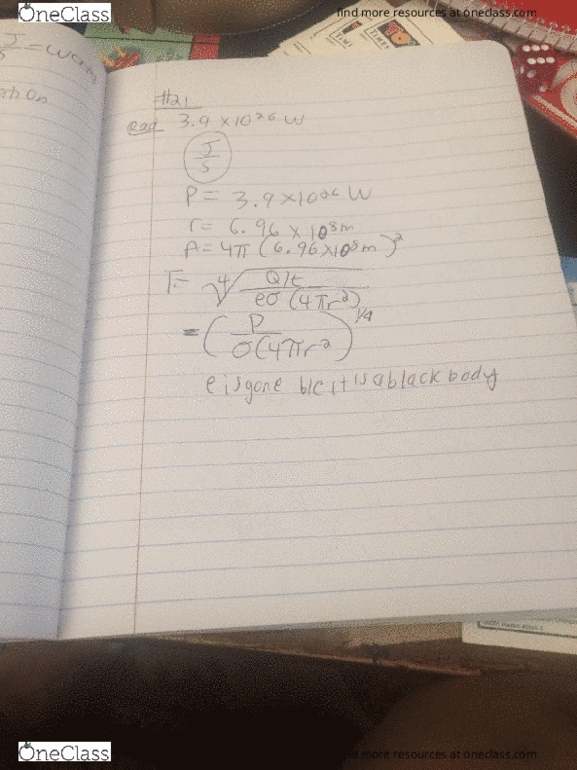 OneClass
find more resources at oneclass.com
J/s = Watts
#21
Rad 3.9 x10²⁶ W
J/s
P = 3.9 x10²⁶ W
r = 6.96 x 10⁸m
A = 4π (6.96 x10⁸m)²
T = ⁴√(Q/t / eσ(4πr²))
= (P / σ(4πr²))^1/4
e is gone b/c it is a black body
OneClass
find more resources at oneclass.com